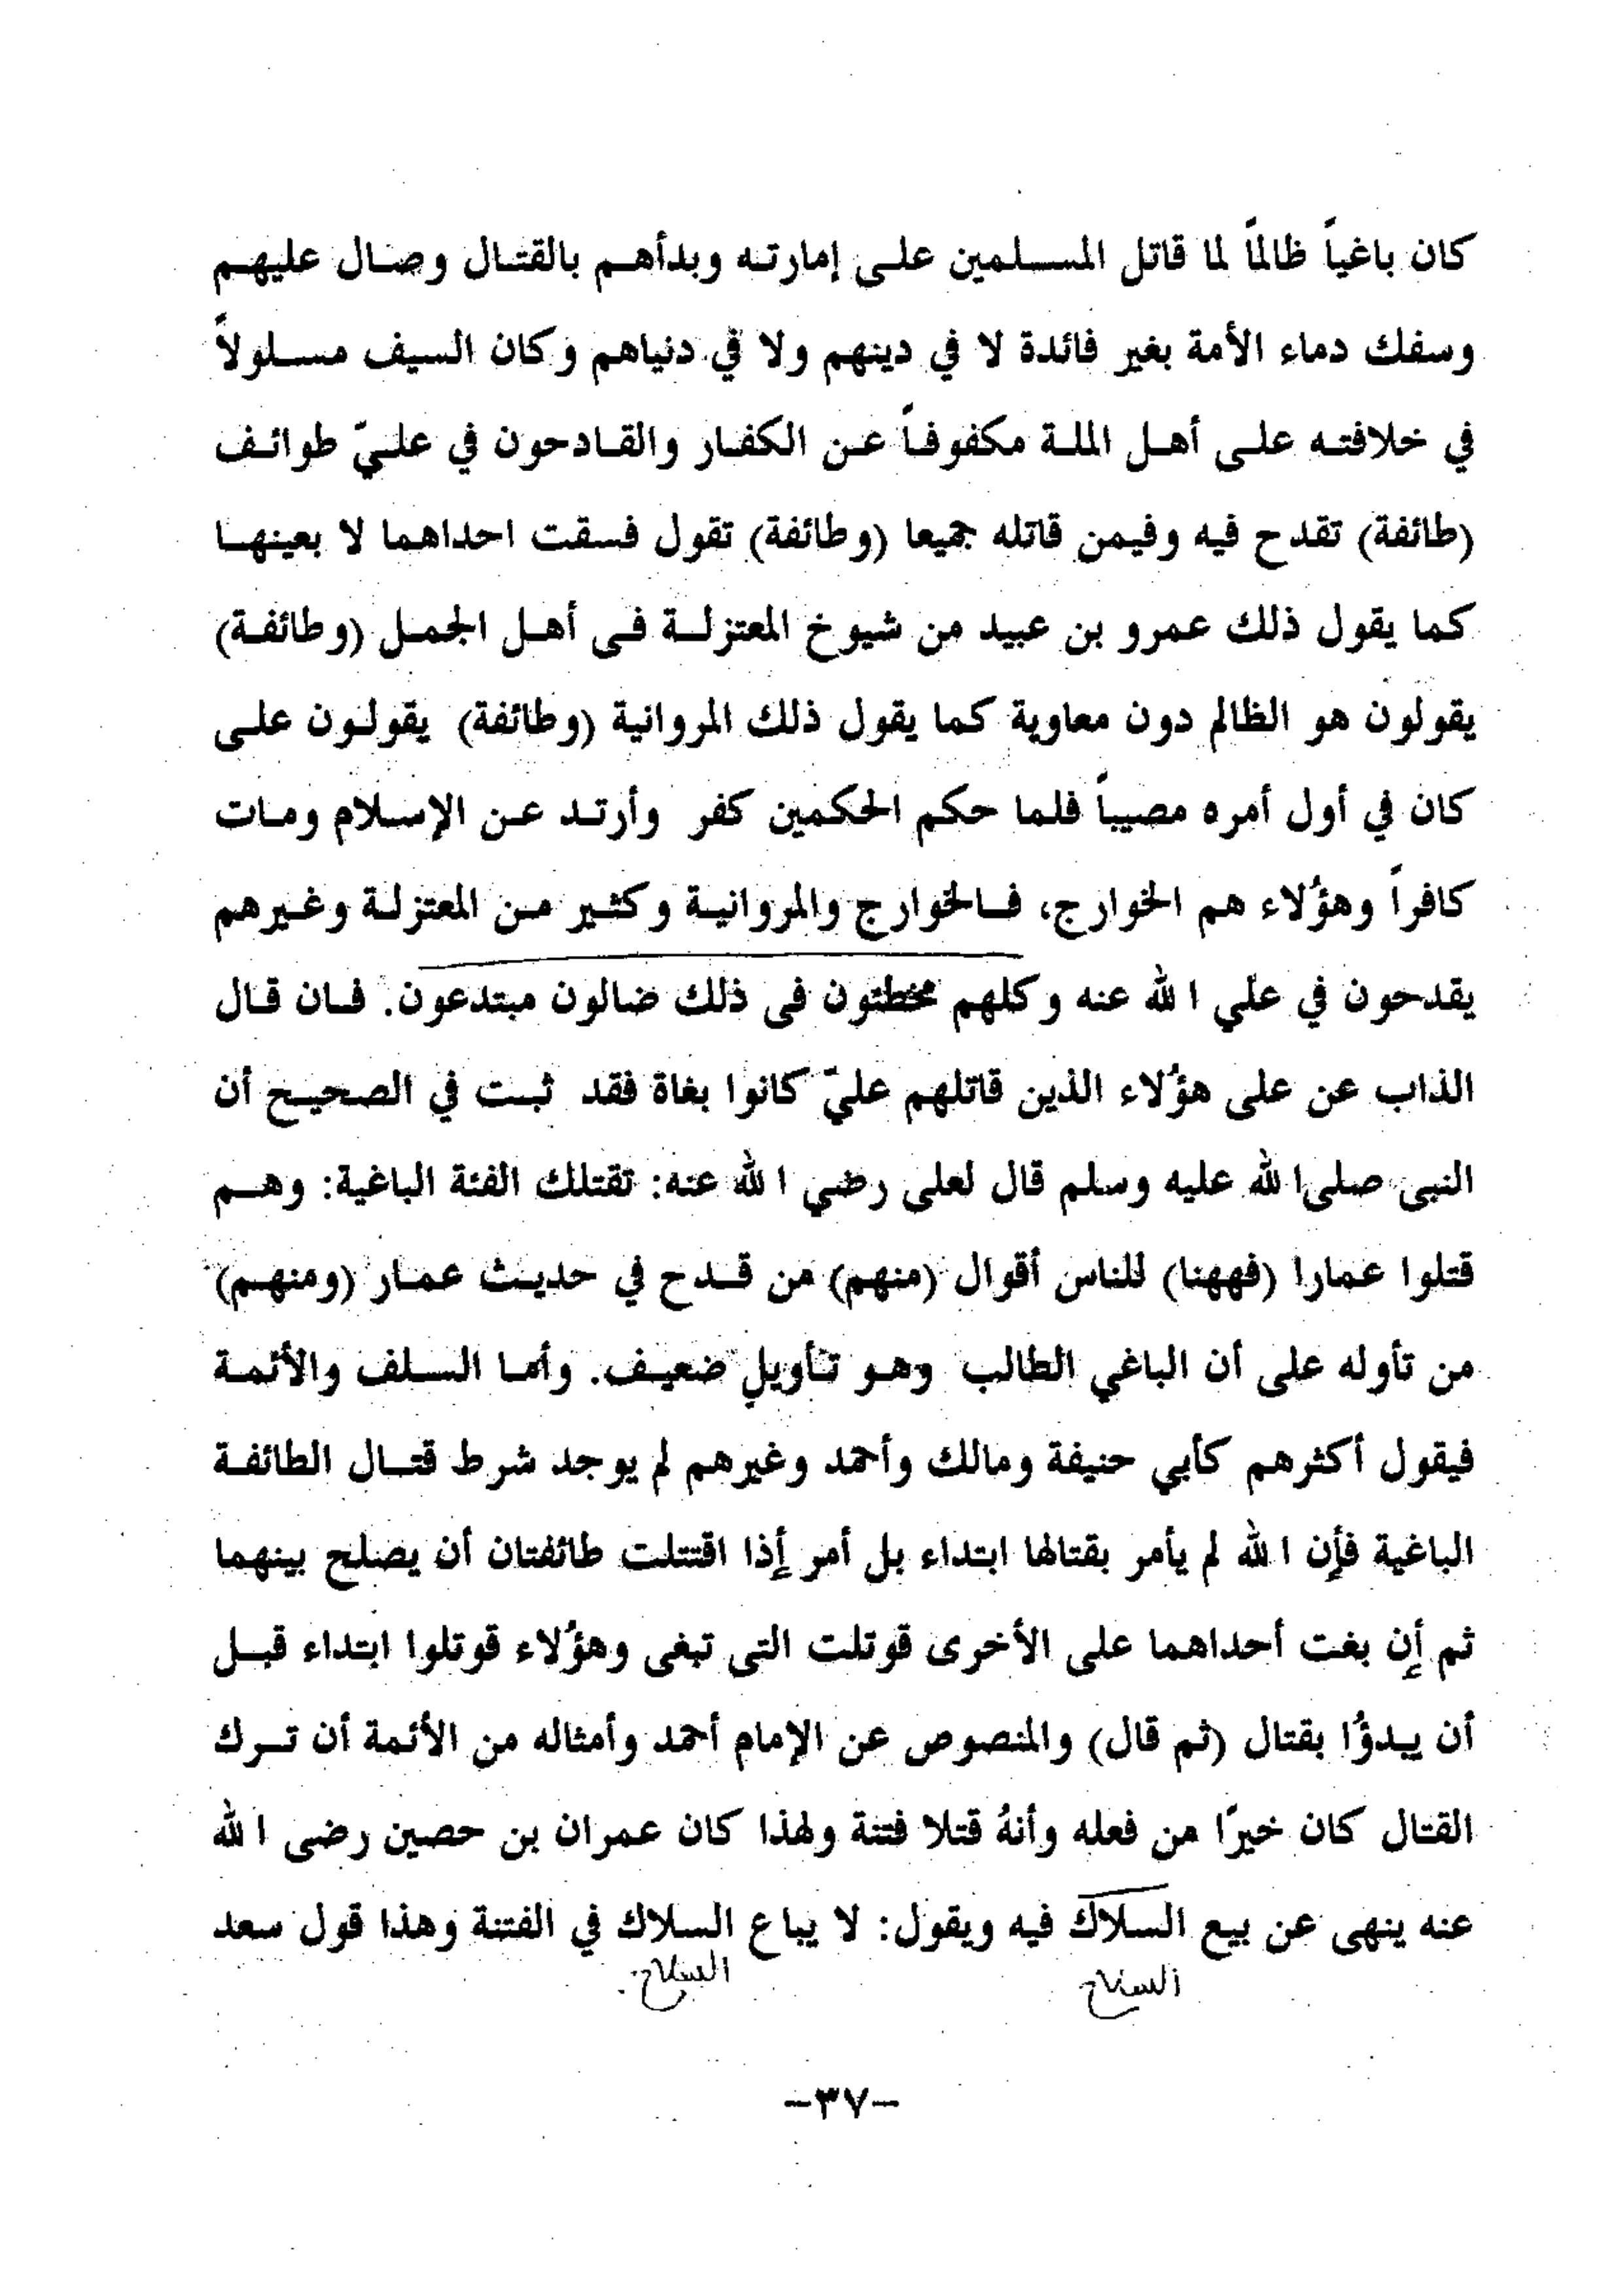 كان باغياً ظالماً لما قاتل المسلمين على إمارته وبدأهم بالقتال وصال عليهم
وسفك دماء الأمة بغير فائدة لا في دينهم ولا في دنياهم وكان السيف مسلولاً
في خلافته على أهل الملة مكفوفاً عن الكفار والقادحون في عليّ طوائف
(طائفة) تقدح فيه وفيمن قاتله جميعا (وطائفة) تقول فسقت احداهما لا بعينها
كما يقول ذلك عمرو بن عبيد من شيوخ المعتزلة فى أهل الجمل (وطائفة)
يقولون هو الظالم دون معاوية كما يقول ذلك المروانية (وطائفة) يقولون على
كان في أول أمره مصيباً فلما حكم الحكمين كفر وأرتد عن الإسلام ومات
كافراً وهؤلاء هم الخوارج، فالخوارج والمروانية وكثير من المعتزلة وغيرهم
يقدحون في علي الله عنه وكلهم مخطئون فى ذلك ضالون مبتدعون. فان قال
الذاب عن على هؤلاء الذين قاتلهم عليّ كانوا بغاة فقد ثبت في الصحيح أن
النبى صلى الله عليه وسلم قال لعلى رضي الله عنه: تقتلك الفئة الباغية: وهم
قتلوا عمارا (فههنا) للناس أقوال (منهم) من قدح في حديث عمار (ومنهم)
من تأوله على أن الباغي الطالب وهو تأويل ضعيف. وأما السلف والأئمة
فيقول أكثرهم كأبي حنيفة ومالك وأحمد وغيرهم لم يوجد شرط قتال الطائفة
الباغية فأِن الله لم يأمر بقتالها ابتداء بل أمر إذا اقتتلت طائفتان أن يصلح بينهما
ثم إن بغت أحداهما على الأخرى قوتلت التى تبغى وهؤلاء قوتلوا ابتداء قبل
أن يبدؤا بقتال (ثم قال) والمنصوص عن الإمام أحمد وأمثاله من الأئمة أن ترك
القتال كان خيرًا من فعله وأنهُ قتلا فتنة ولهذا كان عمران بن حصين رضى الله
عنه ينهى عن بيع السلاك فيه ويقول: لا يباع السلاك في الفتنة وهذا قول سعد
السلاح السلاح
-٣٧-